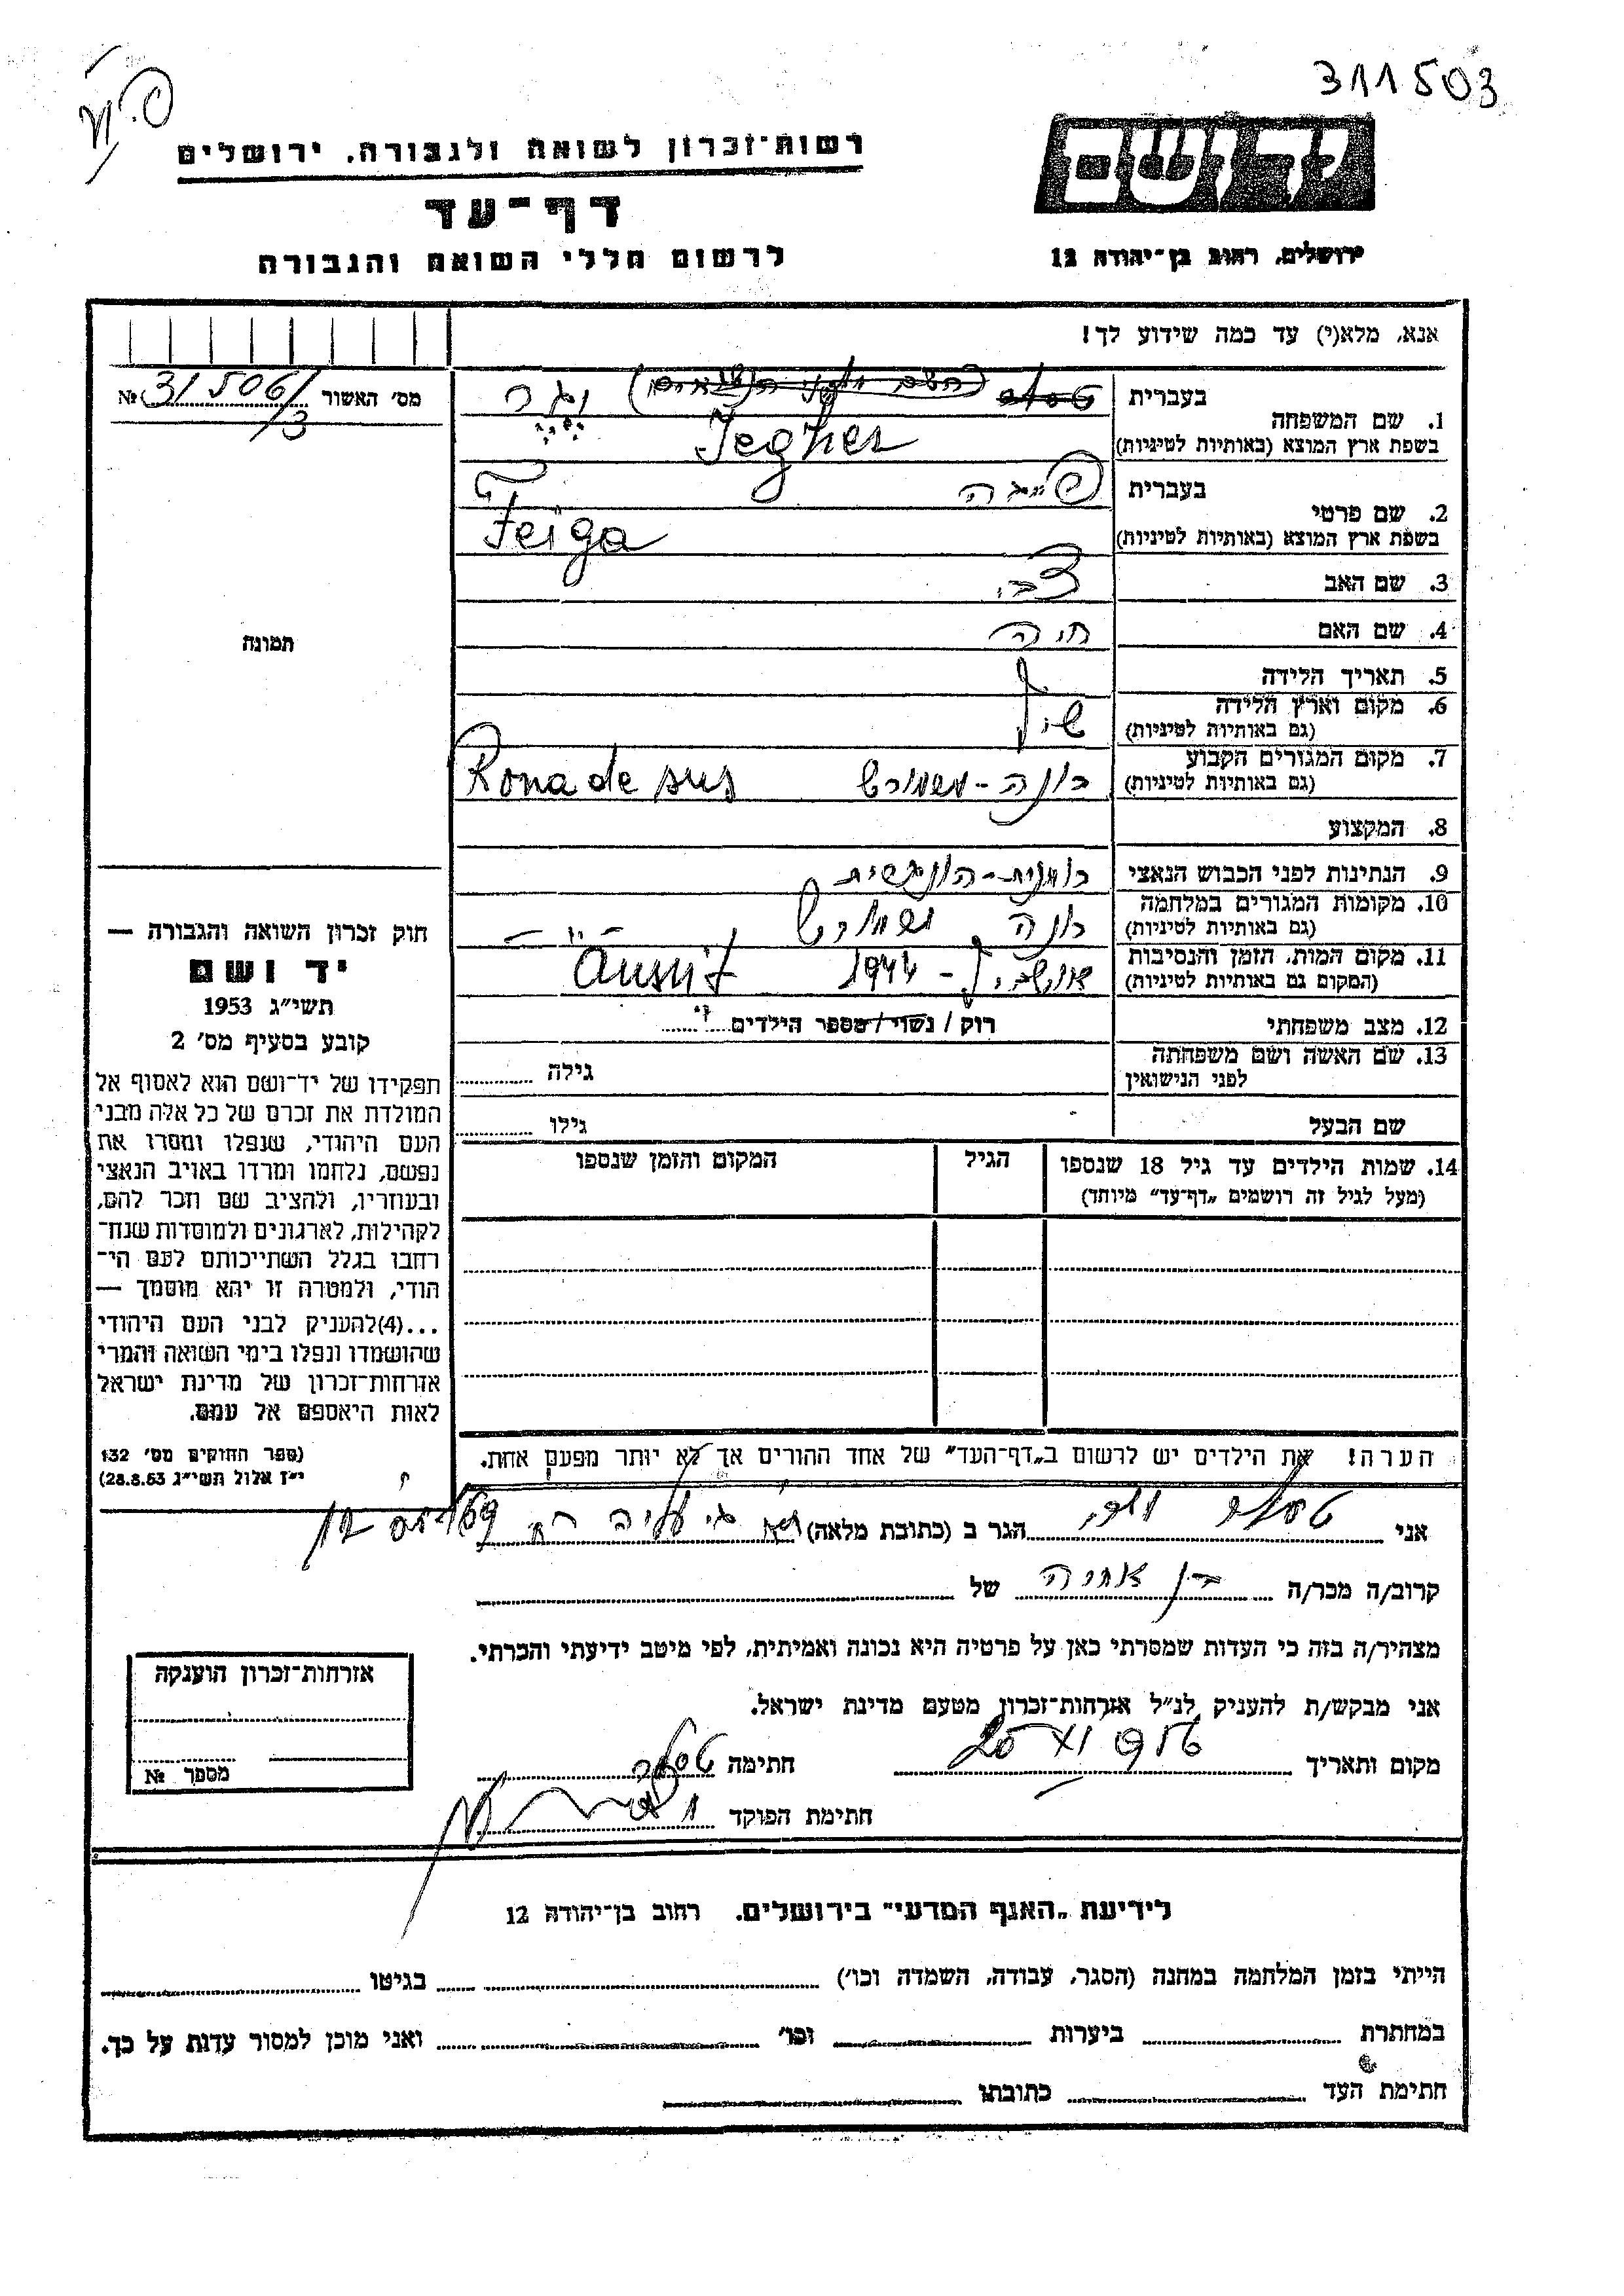 311503
רשות־זכרון לשואה ולגבורה, ירושלים
דף־עד
לרשום חללי השואה והגבורה
יד ושם
ירושלים, רחוב בן־יהודה 12
אנא, מלא(י) עד כמה שידוע לך!
מס׳ האשור 31506/3 №
1. שם המשפחה
בעברית
בשפת ארץ המוצא (באותיות לטיניות) Jegher
2. שם פרטי
בעברית פייגה
בשפת ארץ המוצא (באותיות לטיניות) Feiga
3. שם האב צבי
4. שם האם חיה
5. תאריך הלידה
6. מקום וארץ הלידה
(גם באותיות לטיניות)
7. מקום המגורים הקבוע רונה - Rona de sus
(גם באותיות לטיניות)
8. המקצוע
9. הנתינות לפני הכבוש הנאצי
10. מקומות המגורים במלחמה רונה
(גם באותיות לטיניות)
11. מקום המות, הזמן והנסיבות 1944
(המקום גם באותיות לטיניות)
12. מצב משפחתי רוק / נשוי / מספר הילדים
13. שם האשה ושם משפחתה גילה
לפני הנישואין
שם הבעל גילו
14. שמות הילדים עד גיל 18 שנספו הגיל המקום והזמן שנספו
(מעל לגיל זה רושמים „דף־עד״ מיוחד)
הערה! את הילדים יש לרשום ב„דף־העד״ של אחד ההורים אך לא יותר מפעם אחת.
תמונה
חוק זכרון השואה והגבורה —
יד ושם
תשי״ג 1953
קובע בסעיף מס׳ 2
תפקידו של יד־ושם הוא לאסוף אל
המולדת את זכרם של כל אלה מבני
העם היהודי, שנפלו ומסרו את
נפשם, נלחמו ומרדו באויב הנאצי
ובעוזריו, ולהציב שם וזכר להם,
לקהילות, לארגונים ולמוסדות שנח־
רבו בגלל השתייכותם לעם הי־
הודי, ולמטרה זו יהא מוסמך —
...(4)להעניק לבני העם היהודי
שהושמדו ונפלו בימי השואה והמרי
אזרחות־זכרון של מדינת ישראל
לאות היאספם אל עמם.
(ספר החוקים מס׳ 132
י״ז אלול תשי״ג 28.8.53)
אני הגר ב (כתובת מלאה)
קרוב/ה מכר/ה בן אחיה של
מצהיר/ה בזה כי העדות שמסרתי כאן על פרטיה היא נכונה ואמיתית, לפי מיטב ידיעתי והכרתי.
אני מבקש/ת להעניק לנ״ל אזרחות־זכרון מטעם מדינת ישראל.
מקום ותאריך חתימה
חתימת הפוקד
אזרחות־זכרון הוענקה
מספר №
לידיעת „האגף המדעי״ בירושלים, רחוב בן־יהודה 12
הייתי בזמן המלחמה במחנה (הסגר, עבודה, השמדה וכו׳) בגיטו
במחתרת ביערות וכו׳ ואני מוכן למסור עדות על כך.
חתימת העד כתובתו